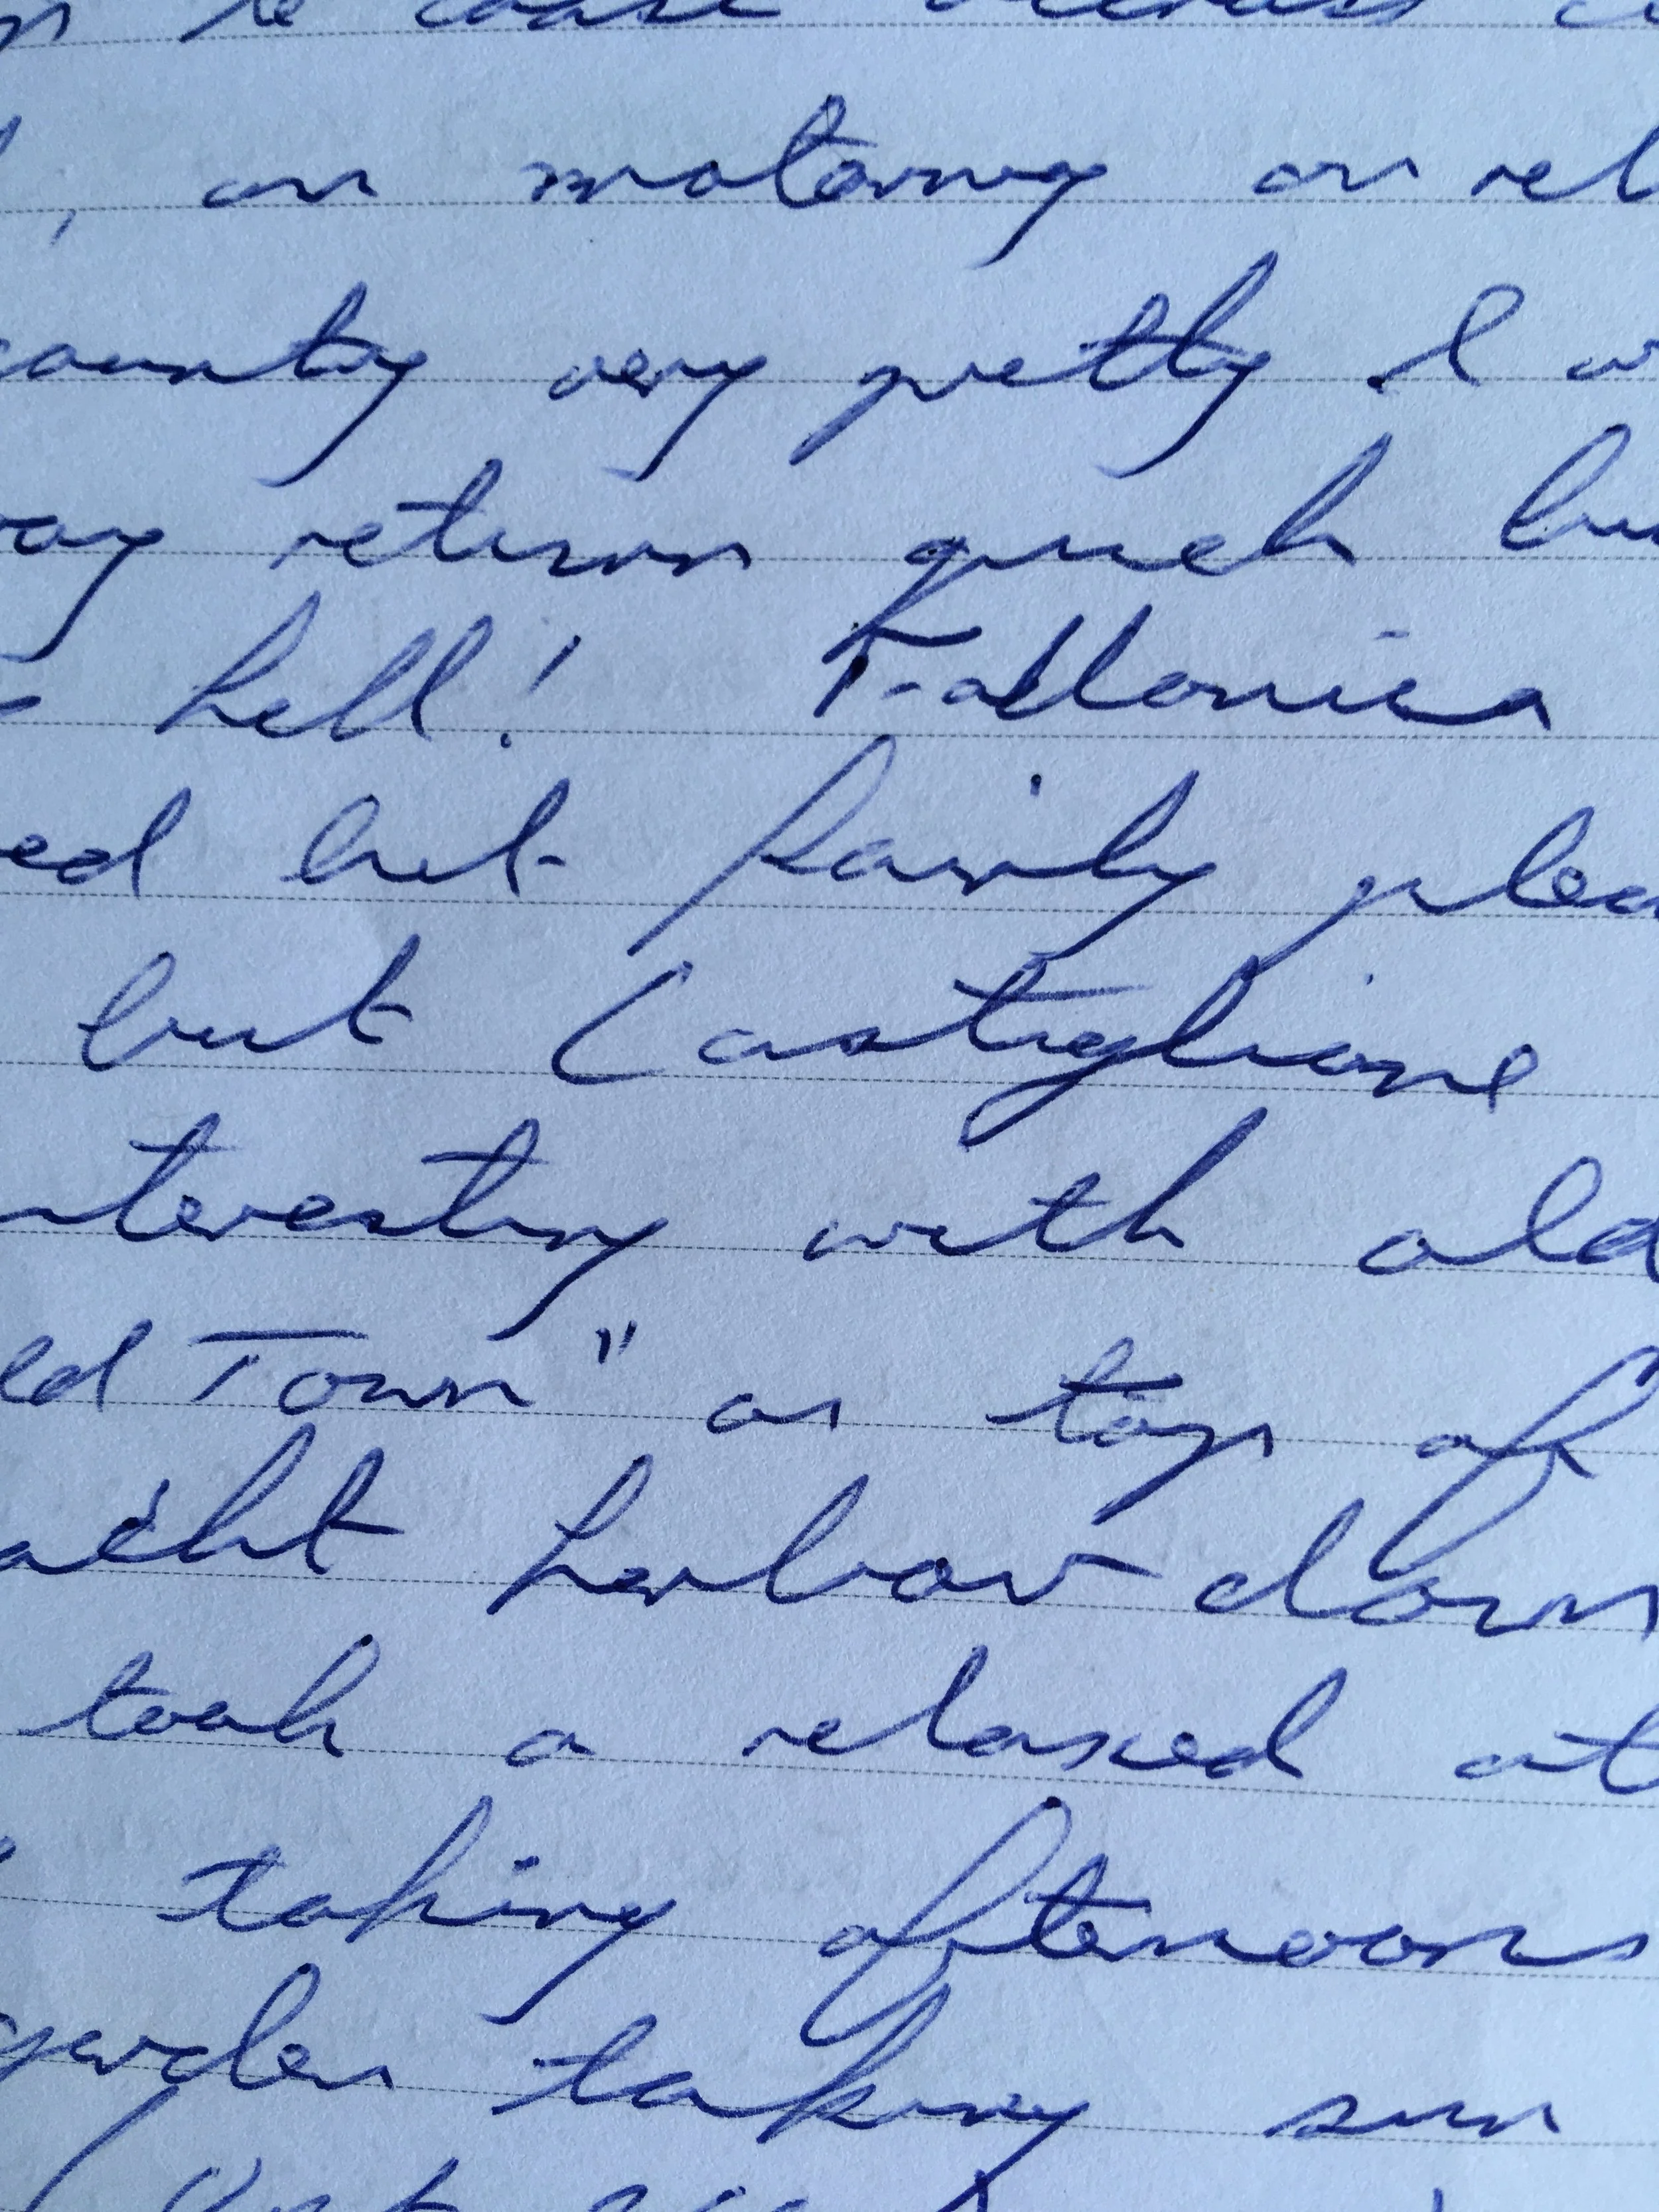 to coast
, on motorway on ret
country very pretty I w
way return quick bu
hell! Follonica
ed but fairly plea
but Castiglione
nteresting with old
ed Town" on top of
acht harbour down
took a relaxed at
taking afternoons
garden taking sun